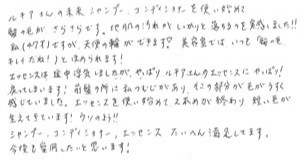 ルキアさんの未来シャンプー、コンディショナーを使い始めて
髪の毛が さらさらです。地肌のうねりが しっかりと落ちるのを実感しました!!
私(47才)ですが、天使の輪ができます? 美容室では いつも「髪の毛
キレイだね!」とほめられます!
エッセンスは 途中浮気しましたが、やっぱり ルキアさんのエッセンスに やっぱり!
戻ってしまいます! 前髪の所に 私つむじがあり、そこの部分が 毛がうすく
感じていました。エッセンスを使い始めて、2本めが終わり 短い毛が
生えてきています! ウソのよう!!
シャンプー、コンディショナー、エッセンス たいへん満足してます。
今後も愛用したいと思います!